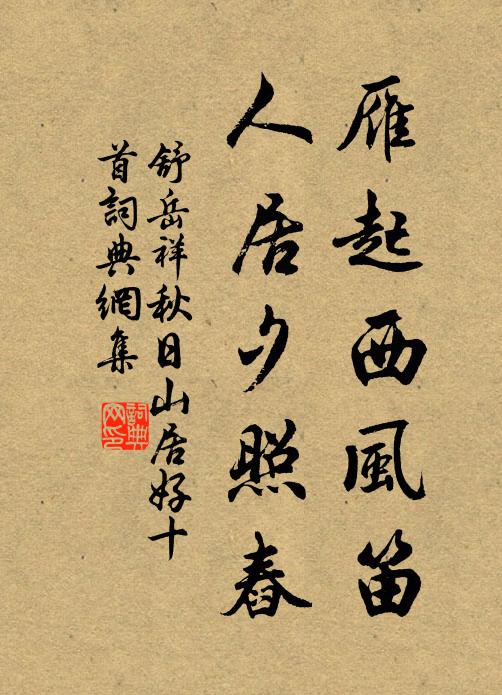 雁起西風笛
人居夕照舂
舒岳祥秋日山居好十
首詞典網集
詞典
网印